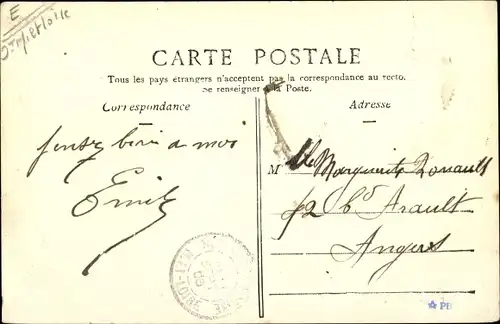 E
CARTE POSTALE
Tous les pays étrangers n'acceptent pas la correspondance au recto.
Se renseigner à la Poste.
Correspondance
Adresse
pensez bien a moi
Emile
M lle Marguerite Ronault
42 bd Arault
Angers
PB